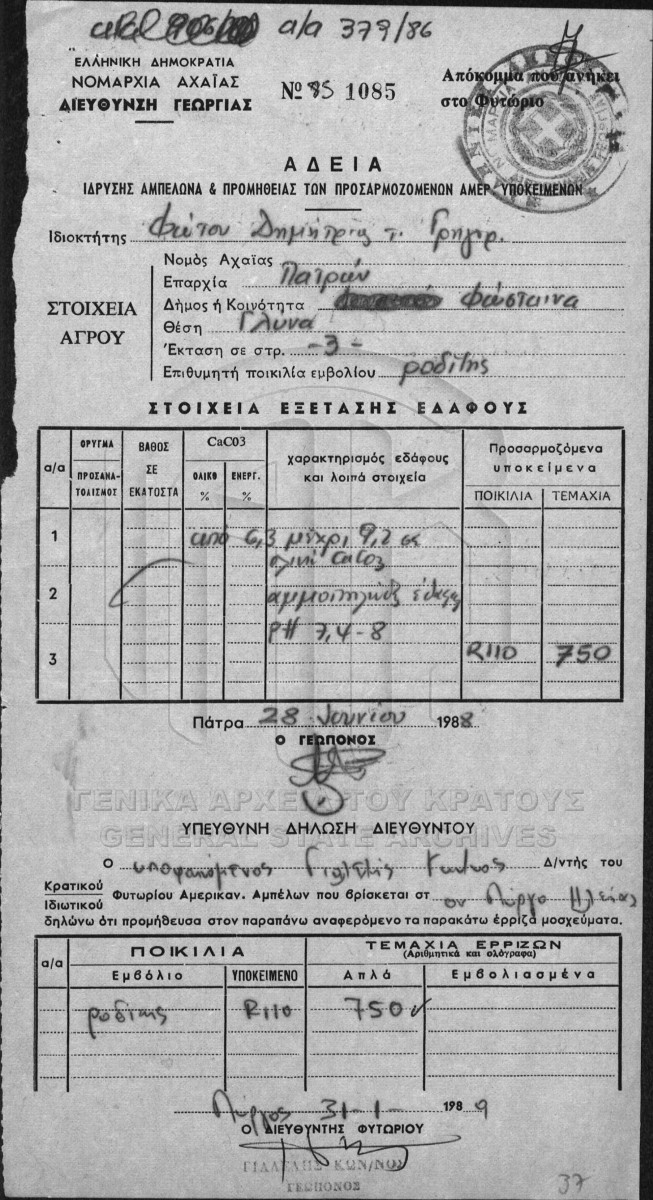 α/α 379/86
ΕΛΛΗΝΙΚΗ ΔΗΜΟΚΡΑΤΙΑ
ΝΟΜΑΡΧΙΑ ΑΧΑΪΑΣ
ΔΙΕΥΘΥΝΣΗ ΓΕΩΡΓΙΑΣ
Nº 85 1085
Απόκομμα που ανήκει
στο Φυτώριο
ΑΔΕΙΑ
ΙΔΡΥΣΗΣ ΑΜΠΕΛΩΝΑ & ΠΡΟΜΗΘΕΙΑΣ ΤΩΝ ΠΡΟΣΑΡΜΟΖΟΜΕΝΩΝ ΑΜΕΡ. ΥΠΟΚΕΙΜΕΝΩΝ
Ιδιοκτήτης Φώτου Δημήτριος τ. Γρηγορ.
ΣΤΟΙΧΕΙΑ
ΑΓΡΟΥ
Νομός Αχαΐας
Επαρχία Πατρών
Δήμος ή Κοινότητα Φώσταινα
Θέση Γλυνα
Έκταση σε στρ. -3-
Επιθυμητή ποικιλία εμβολίου ροδίτης
ΣΤΟΙΧΕΙΑ ΕΞΕΤΑΣΗΣ ΕΔΑΦΟΥΣ
α/α
ΟΡΥΓΜΑ
ΠΡΟΣΑΝΑ-
ΤΟΛΙΣΜΟΣ
ΒΑΘΟΣ
ΣΕ
ΕΚΑΤΟΣΤΑ
CaCO3
ΟΛΙΚΟ
%
ΕΝΕΡΓ.
%
χαρακτηρισμός εδάφους
και λοιπά στοιχεία
Προσαρμοζόμενα
υποκείμενα
ΠΟΙΚΙΛΙΑ ΤΕΜΑΧΙΑ
1 από 6,3 μέχρι 9,2 σε
ολικό CaCO3
2 αμμοπηλώδες έδαφος
PH 7,4-8
3 R110 750
Πάτρα 28 Ιουνίου 1988
Ο ΓΕΩΠΟΝΟΣ
ΓΕΝΙΚΑ ΑΡΧΕΙΑ ΤΟΥ ΚΡΑΤΟΥΣ
GENERAL STATE ARCHIVES
ΥΠΕΥΘΥΝΗ ΔΗΛΩΣΗ ΔΙΕΥΘΥΝΤΟΥ
Ο υπογραφόμενος Γιαλελής Κων/νος Δ/ντής του
Κρατικού
Ιδιωτικού
Φυτωρίου Αμερικαν. Αμπέλων που βρίσκεται στ ον Πύργο Ηλείας
δηλώνω ότι προμήθευσα στον παραπάνω αναφερόμενο τα παρακάτω έρριζα μοσχεύματα.
α/α
ΠΟΙΚΙΛΙΑ
Εμβόλιο ΥΠΟΚΕΙΜΕΝΟ
ΤΕΜΑΧΙΑ ΕΡΡΙΖΩΝ
(Αριθμητικά και ολόγραφα)
Απλά Εμβολιασμένα
ροδίτης R110 750
Πύργος 31-1- 1989
Ο ΔΙΕΥΘΥΝΤΗΣ ΦΥΤΩΡΙΟΥ
ΓΙΑΛΕΛΗΣ ΚΩΝ/ΝΟΣ
ΓΕΩΠΟΝΟΣ
37